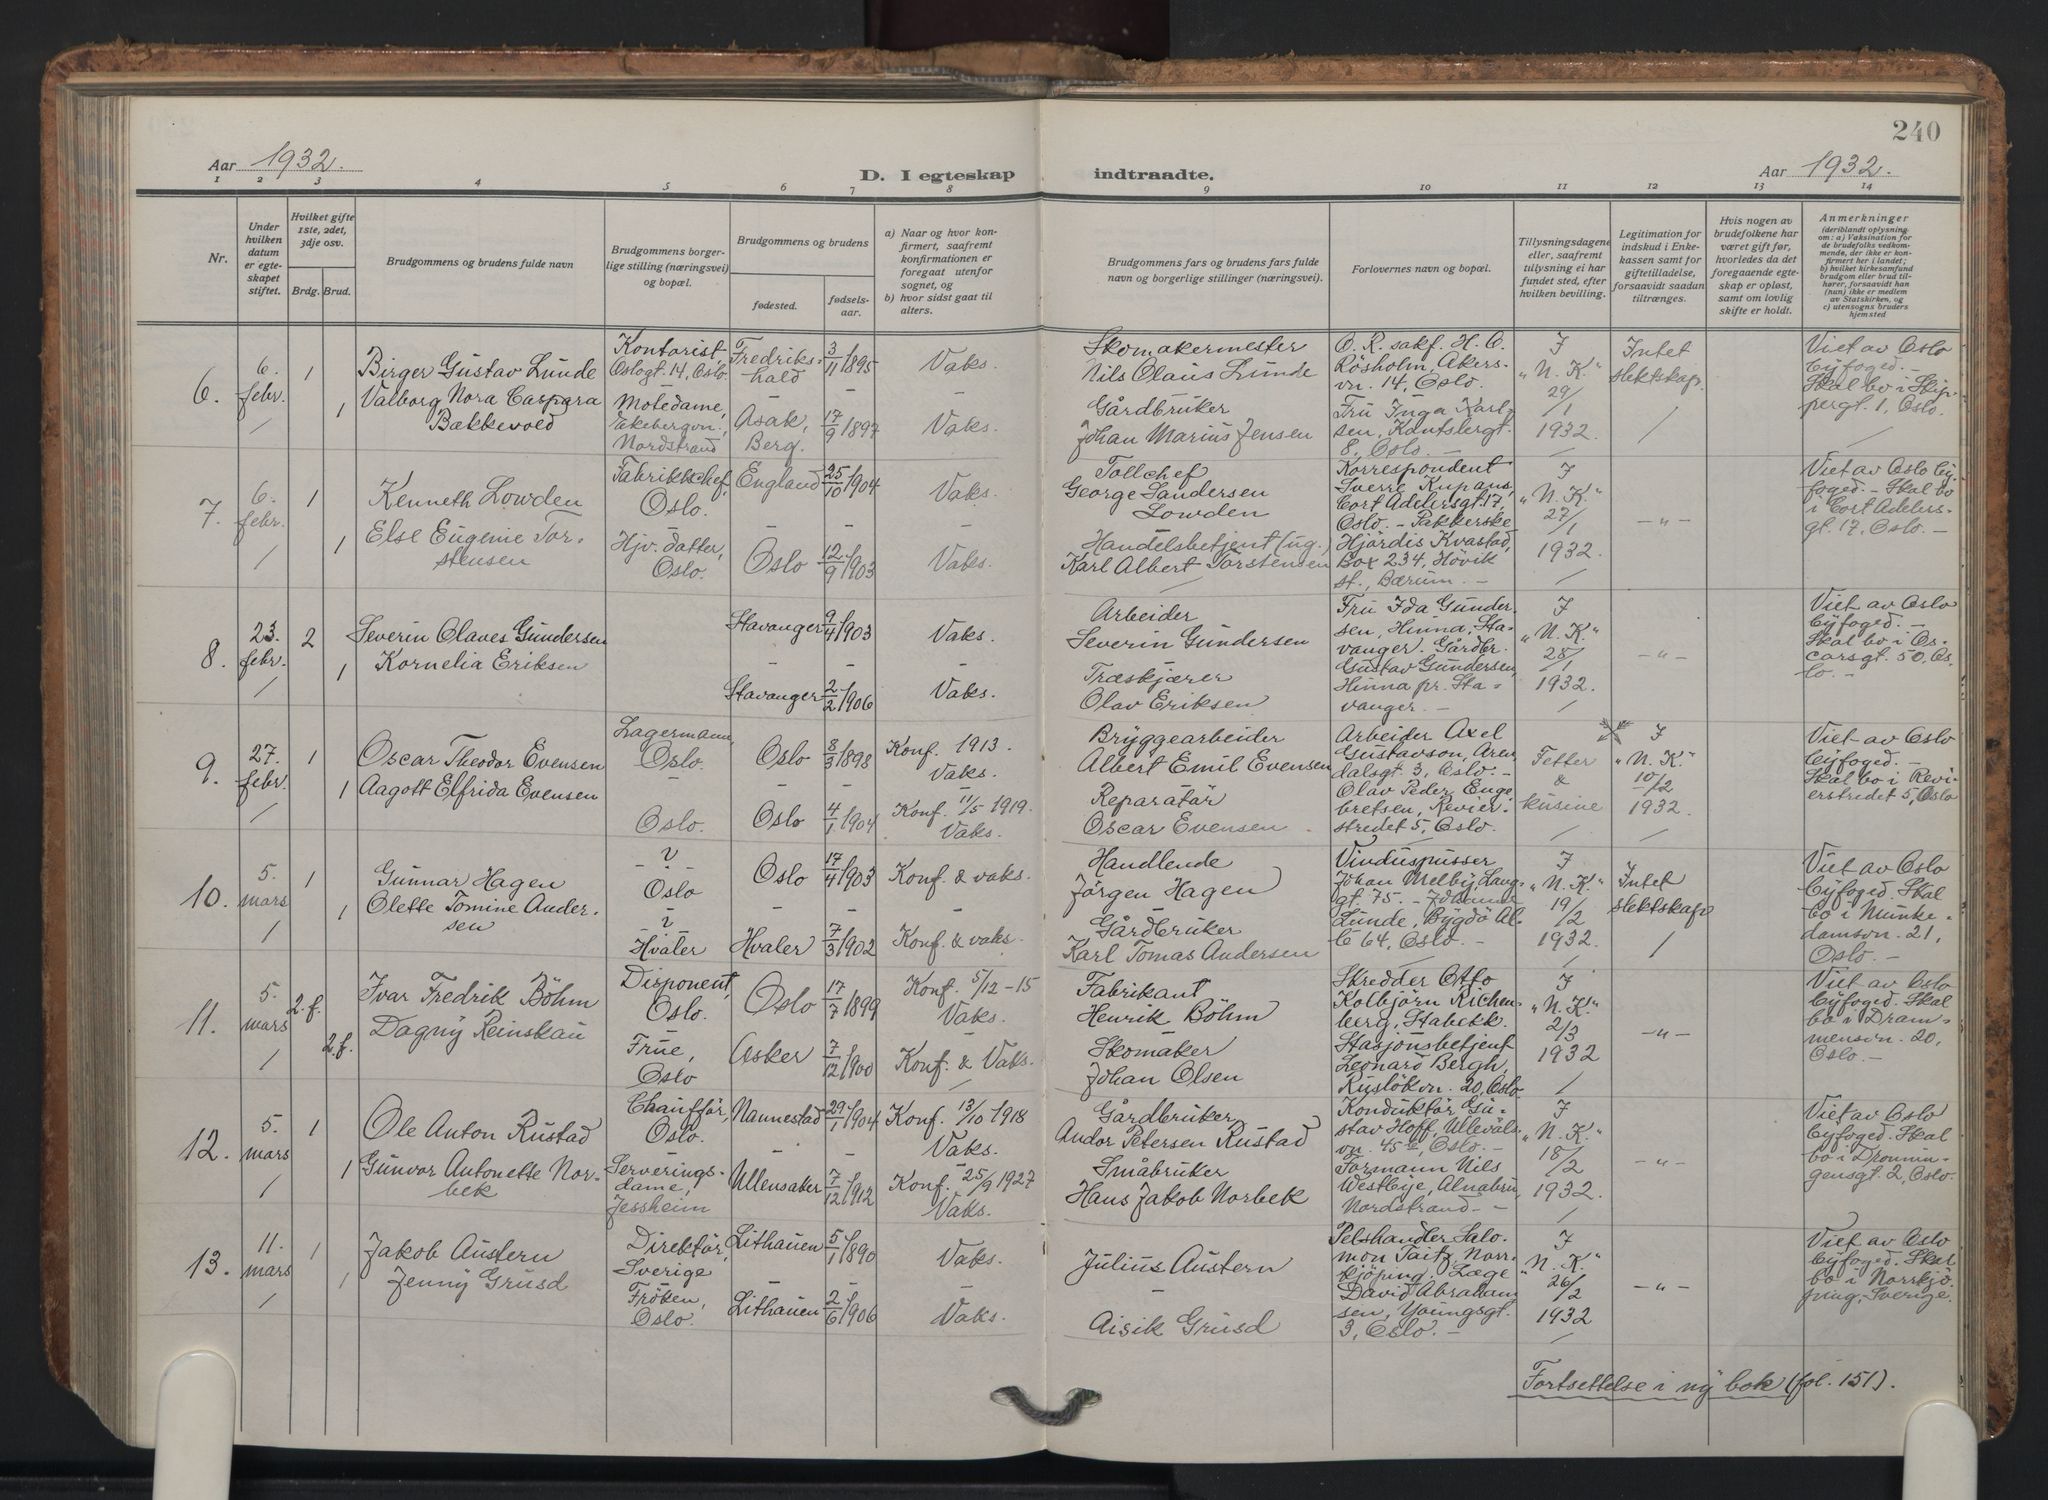 240
Aar 1932.
D. I egteskap
indtraadte.
Aar 1932.
1 2 3 4 5 6 7 8 9 10 11 12 13 14
Nr.
Under hvilken datum er egteskapet stiftet.
Hvilket gifte 1ste, 2det, 3dje osv.
Brdg. Brud.
Brudgommens og brudens fulde navn
Brudgommens borgerlige stilling (næringsvei) og bopæl.
Brudgommens og brudens
fødested.
fødselsaar.
a) Naar og hvor konfirmert, saafremt konfirmationen er foregaat utenfor sognet, og
b) hvor sidst gaat til alters.
Brudgommens fars og brudens fars fulde navn og borgerlige stillinger (næringsvei).
Forlovernes navn og bopæl.
Tillysningsdagene eller, saafremt tillysning ei har fundet sted, efter hvilken bevilling.
Legitimation for indskud i Enkekassen samt for giftetilladelse, forsaavidt saadan tiltrænges.
Hvis nogen av brudefolkene har været gift før, hvorledes da det foregaaende egteskap er opløst, samt om lovlig skifte er holdt.
Anmerkninger
(deriblandt oplysning om: a) Vaksination for de brudefolks vedkommende, der ikke er konfirmert her i landet; b) hvilket kirkesamfund brudgom eller brud tilhører, forsaavidt han (hun) ikke er medlem av Statskirken, og c) utensogns bruders hjemsted
6.
6. febr.
1
1
Birger Gustav Lunde
Valborg Nora Caspara
Bakkevold
Kontorist,
Oslogt. 14, Oslo.
Motedame,
Ekebergvn.,
Nordstrand
Fredrikshald
3/11 1895
Asak,
Berg.
17/9 1897
Vaks.
Vaks.
Skomakermester
Nils Olaus Lunde
Gårdbruker
Johan Marius Jensen
O. R. sakf. H. O.
Røsholm, Akersvn. 14, Oslo.
Fru Inga Karlsen, Kantsbergt.
8, Oslo. –
I
"N. K."
29/1
1932.
Intet
slektskap.
Viet av Oslo
byfoged. –
Skal bo i Skippergt. 1, Oslo.
7.
6. febr.
1
1
Kenneth Lowden
Else Eugenie Torstensen
Fabrikkchef,
Oslo.
Hjv. datter,
Oslo.
England
25/10 1904
Oslo
12/9 1903
Vaks.
Vaks.
Tollchef
George Sandersen
Lowden
Handelsbetjent (ug.)
Karl Albert Torstensen
Korrespondent
Sverre Kupans,
Cort Adelersgt. 17,
Oslo. – Pakkerske
Hjördis Kvastad,
Box 234, Hövik
st., Bærum. –
I
"N. K."
27/1
1932.
– " –
Viet av Oslo byfoged. – Skal bo
i Cort Adelersgt. 17, Oslo. –
8.
23. febr.
2
1
Severin Olaves Gundersen
Kornelia Eriksen
Stavanger
9/4 1903
Stavanger
2/2 1906
Vaks.
Vaks.
Arbeider
Severin Gundersen
Træskjærer
Olav Eriksen
Fru Ida Gundersen, Hinna, Stavanger. Gårdbr.
Gustav Gundersen,
Hinna pr. Stavanger. –
I
"N. K."
28/1
1932.
– " –
Viet av Oslo
byfoged. –
Skal bo i Oscarsgt. 50, Oslo. –
9.
27. febr.
1
1
Oscar Theodor Evensen
Aagott Elfrida Evensen
Lagermann,
Oslo.
Oslo.
Oslo
8/3 1898
Oslo
4/1 1904
Konf. 1913.
Vaks.
Konf. 11/5 1919.
Vaks.
Bryggearbeider
Albert Emil Evensen
Reparatør
Oscar Evensen
Arbeider Axel
Gustavson, Arendalsgt. 3, Oslo. –
Olav Peder Engebretsen, Revierstredet 5, Oslo.
Fetter
&
kusine
I
"N. K."
10/2
1932.
Viet av Oslo
byfoged. –
Skal bo i Revierstredet 5, Oslo
10.
5. mars
1
1
Gunnar Hagen
Olette Tomine Andersen
– ? –
Oslo
– ? –
Hvaler
Oslo
17/4 1903
Hvaler
7/3 1902
Konf. & vaks.
Konf. & vaks.
Handlende
Jörgen Hagen
Gårdbruker
Karl Tomas Andersen
Vinduspusser
Johan Melby, Langgt. 75. – Johanne
Lunde, Bygdö Allé 64, Oslo. –
I
"N. K."
19/2
1932.
Intet
slektskap
Viet av Oslo
byfoged. Skal
bo i Munkedamsvn. 21,
Oslo. –
11.
5. mars
2. f.
2. f.
Ivar Fredrik Böhm
Dagny Reinskau
Disponent,
Oslo.
Frue,
Oslo
Oslo
17/7 1899
Asker
7/12 1900
Konf. 5/12 – 15
Vaks.
Konf. & Vaks.
Fabrikant
Henrik Böhm
Skomaker
Johan Olsen
Skredder Otto
Kolbjörn Richenberg, Stabekk.
Stasjonsbetjent
Leonard Bergh,
Ruslökvn. 20, Oslo.
I
"N. K."
2/3
1932
– " –
Viet av Oslo
byfoged. Skal
bo i Drammensvn. 20,
Oslo. –
12.
5. mars
1
1
Ole Anton Rustad
Gunvor Antonette Norbek
Chauffør,
Oslo.
Serveringsdame,
Jessheim
Nannestad
29/1 1904
Ullensaker
7/12 1912
Konf. 13/10 1918
Vaks.
Konf. 25/9 1927
Vaks.
Gårdbruker
Andor Petersen Rustad
Småbruker
Hans Jakob Norbek
Konduktør Gustav Hoff, Ullevålsvn. 45a, Oslo. –
Formann Nils
Westbye, Alnabru,
Nordstrand. –
I
"N. K."
18/2
1932.
– " –
Viet av Oslo
byfoged. Skal
bo i Dronningensgt. 2, Oslo.
13.
11. mars
1
1
Jakob Austern
Jenny Grusd
Direktør,
Sverige
Frøken,
Oslo.
Lithauen
5/1 1890
Lithauen
2/6 1906
Vaks.
Vaks.
Julius Austern
–
Aisik Grusd
Pelshandler Salomon Taitz, Norrkjøping. Læge
David Abrahamsen, Youngsgt.
3, Oslo. –
I
"N. K."
26/2
1932
– " –
Viet av Oslo
byfoged. Skal
bo i Norrkjøping, Sverige.
Fortsettelse i ny bok (fol. 151).